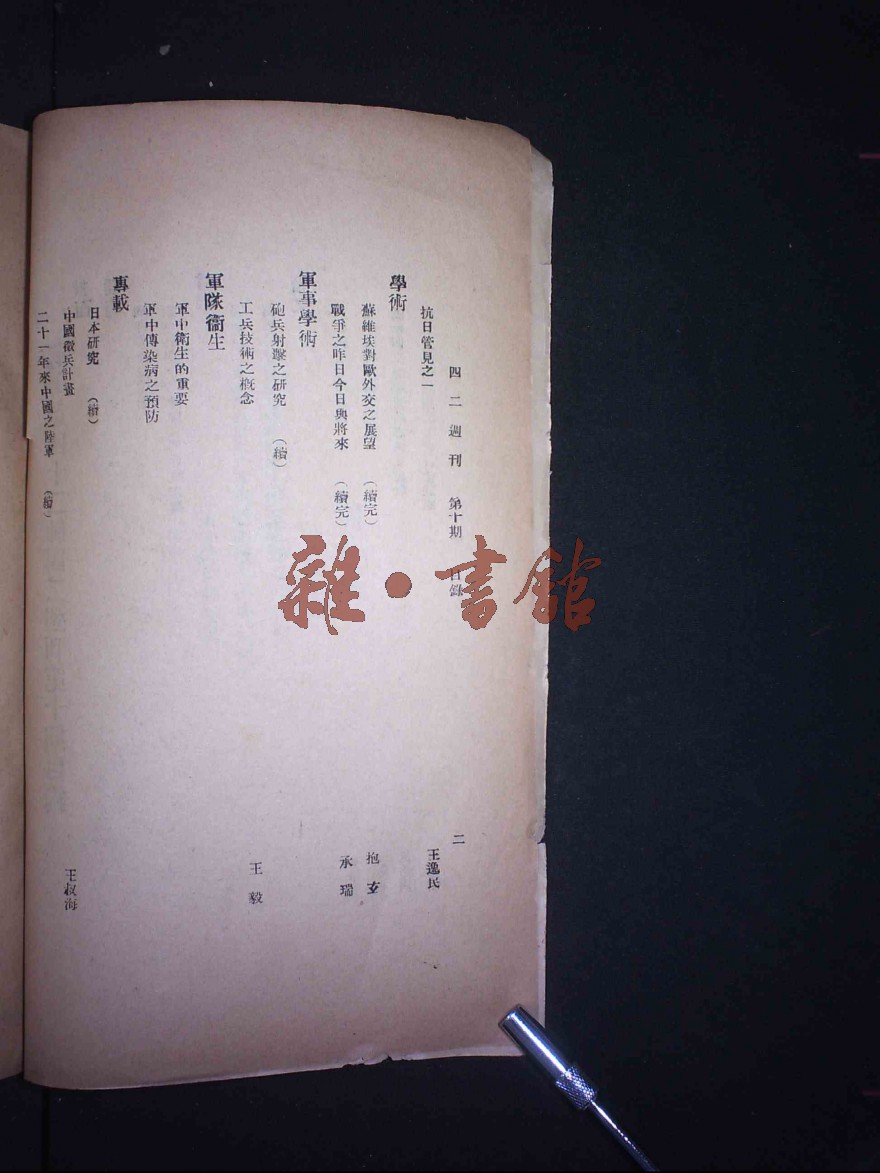 四二週刊 第十期 目錄 二
抗日管見之一 王逸民
學術
蘇維埃對歐外交之展望 （續完） 抱玄
戰爭之昨日今日與將來 （續完） 承瑞
軍事學術
砲兵射擊之研究 （續）
工兵技術之概念 王毅
軍隊衞生
軍中衛生的重要
軍中傳染病之預防
專載
日本研究 （續）
中國徵兵計畫 王叔海
二十一年來中國之陸軍 （續）
雜·書館